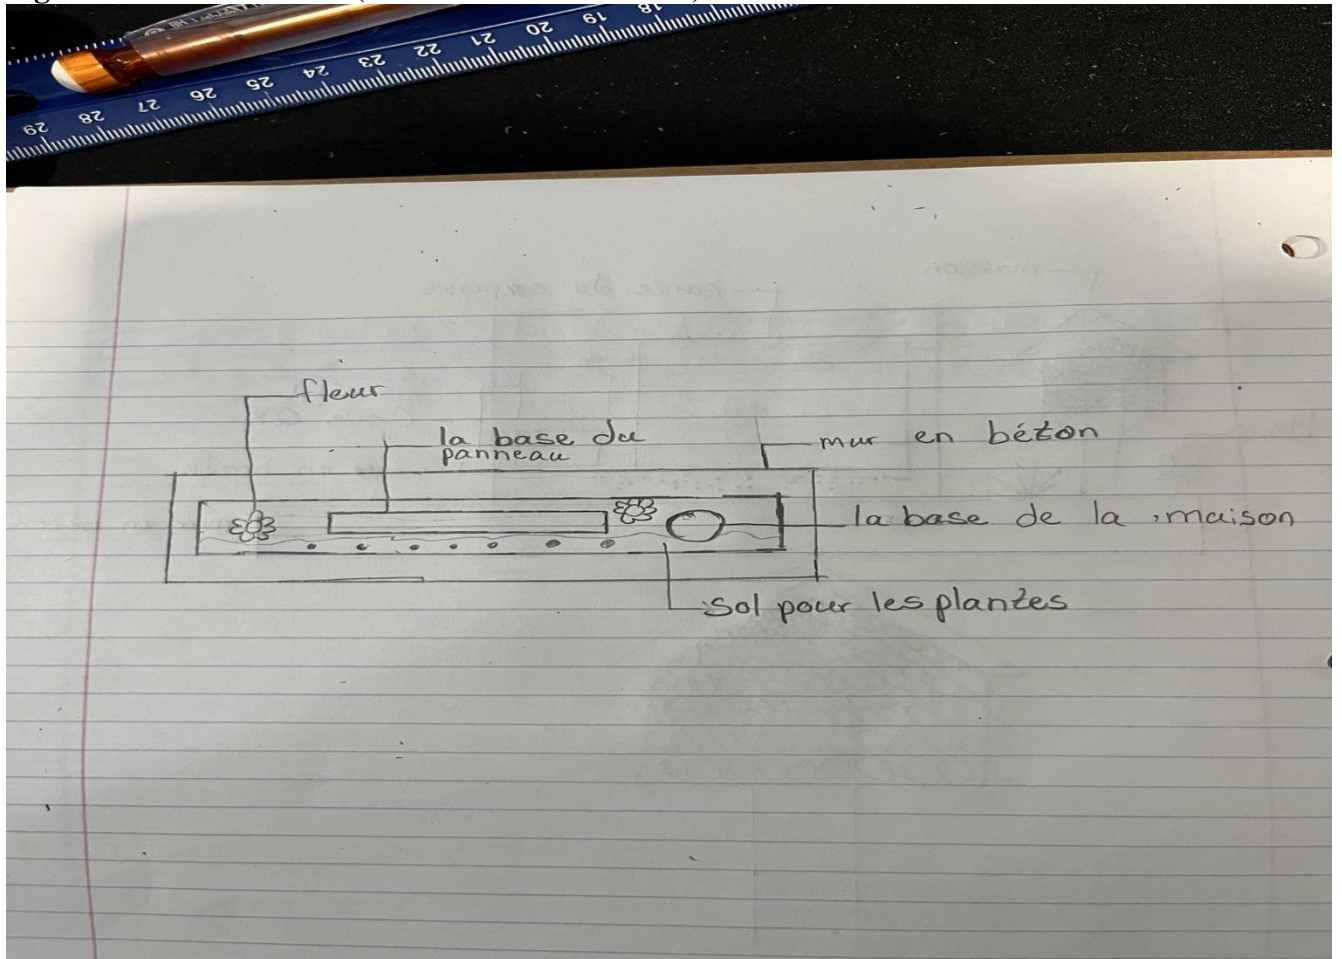 29 28 27 26 25 24 23 22 21 20 19 18
HB
fleur
la base du
panneau
mur en béton
la base de la maison
sol pour les plantes